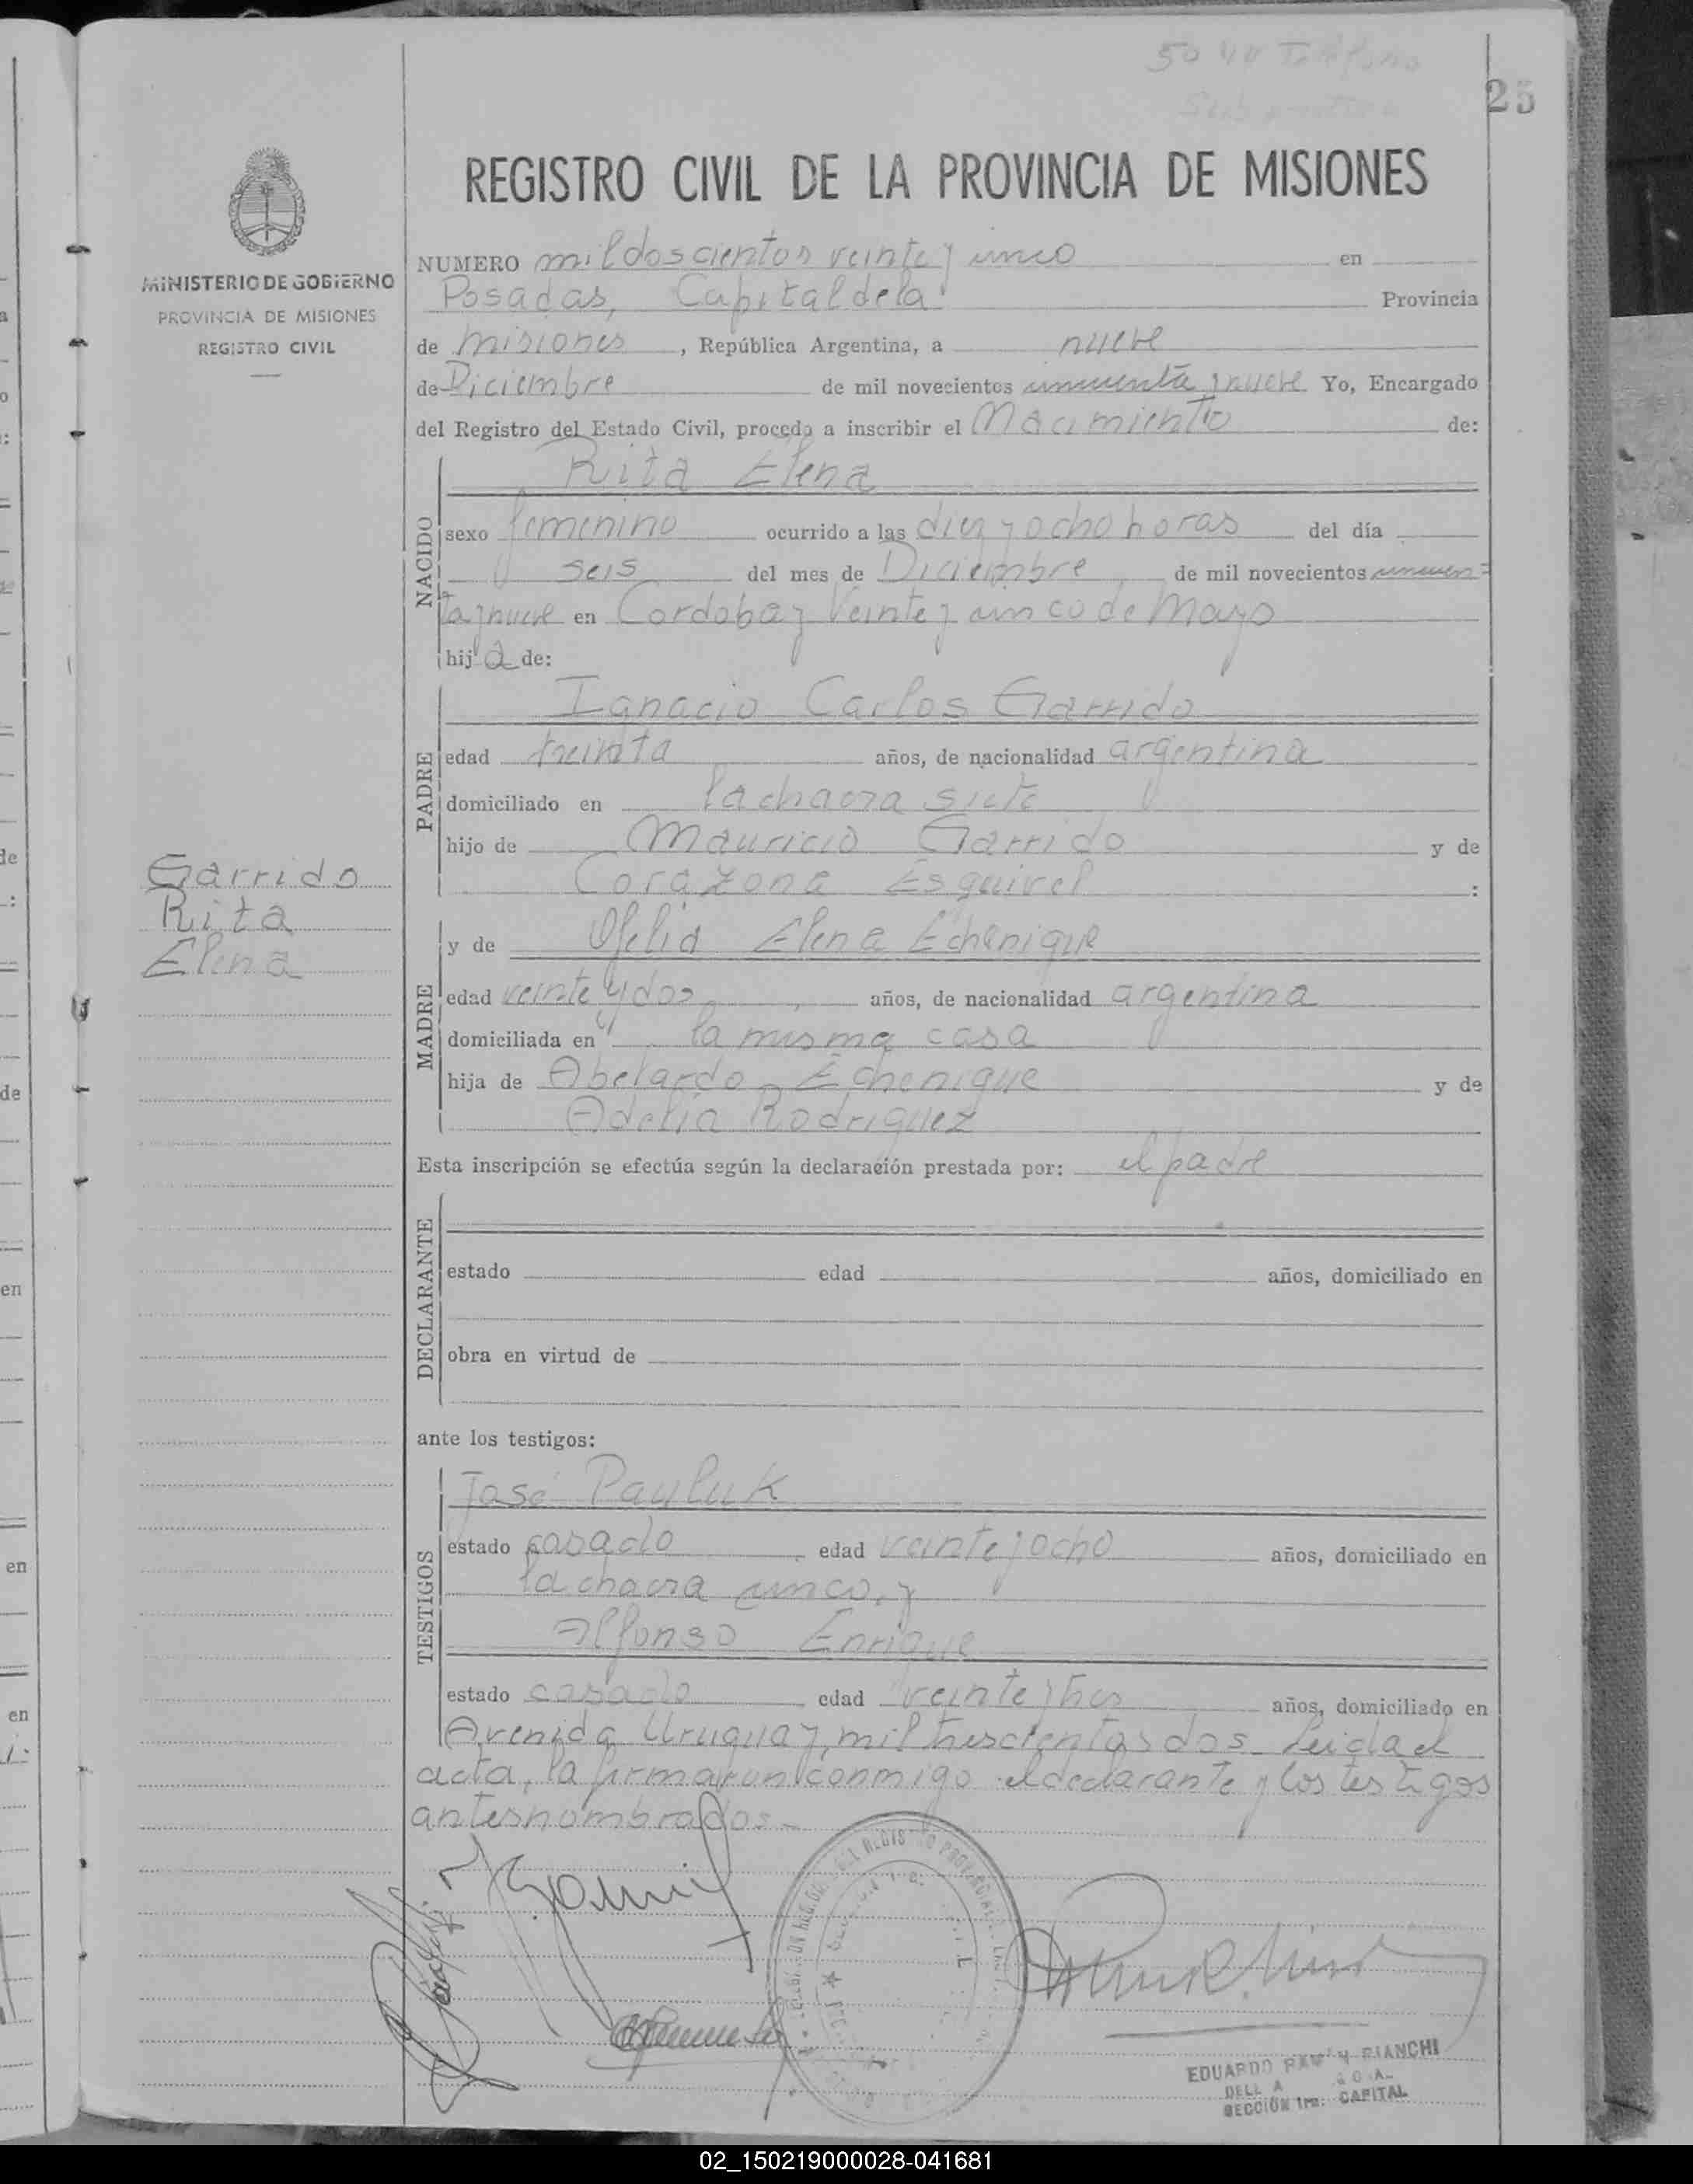 25
REGISTRO CIVIL DE LA PROVINCIA DE MISIONES
MINISTERIO DE GOBIERNO
PROVINCIA DE MISIONES
REGISTRO CIVIL
NUMERO mil doscientos veinte y cinco en
Posadas, Capital de la Provincia
de Misiones, República Argentina, a nueve
de Diciembre de mil novecientos cincuenta y nueve Yo, Encargado
del Registro del Estado Civil, procedo a inscribir el Nacimiento de:
NACIDO
Rita Elena
sexo femenino ocurrido a las diez y ocho horas del día
seis del mes de Diciembre de mil novecientos cincuen=
ta y nueve en Cordoba y Veinte y cinco de Mayo
hija de:
PADRE
Ignacio Carlos Garrido
edad treinta años, de nacionalidad argentina
domiciliado en la chacra siete
hijo de Mauricio Garrido y de
Corazona Esquivel :
Garrido
Rita
Elena
MADRE
y de Ofelia Elena Echenique
edad veinte y dos años, de nacionalidad argentina
domiciliada en la misma casa
hija de Abelardo Echenique y de
Adelia Rodriguez
Esta inscripción se efectúa según la declaración prestada por: el padre
DECLARANTE
estado edad años, domiciliado en
obra en virtud de
ante los testigos:
TESTIGOS
José Pauluk
estado casado edad veinte y ocho años, domiciliado en
la chacra cinco, y
Alfonso Enrique
estado casado edad veinte y tres años, domiciliado en
Avenida Uruguay, mil trescientos dos. Leida el
acta, la firmaron conmigo el declarante y los testigos
antes nombrados.-
EDUARDO RAMON BIANCHI
SECCIÓN 1ra. CAPITAL
02_150219000028-041681